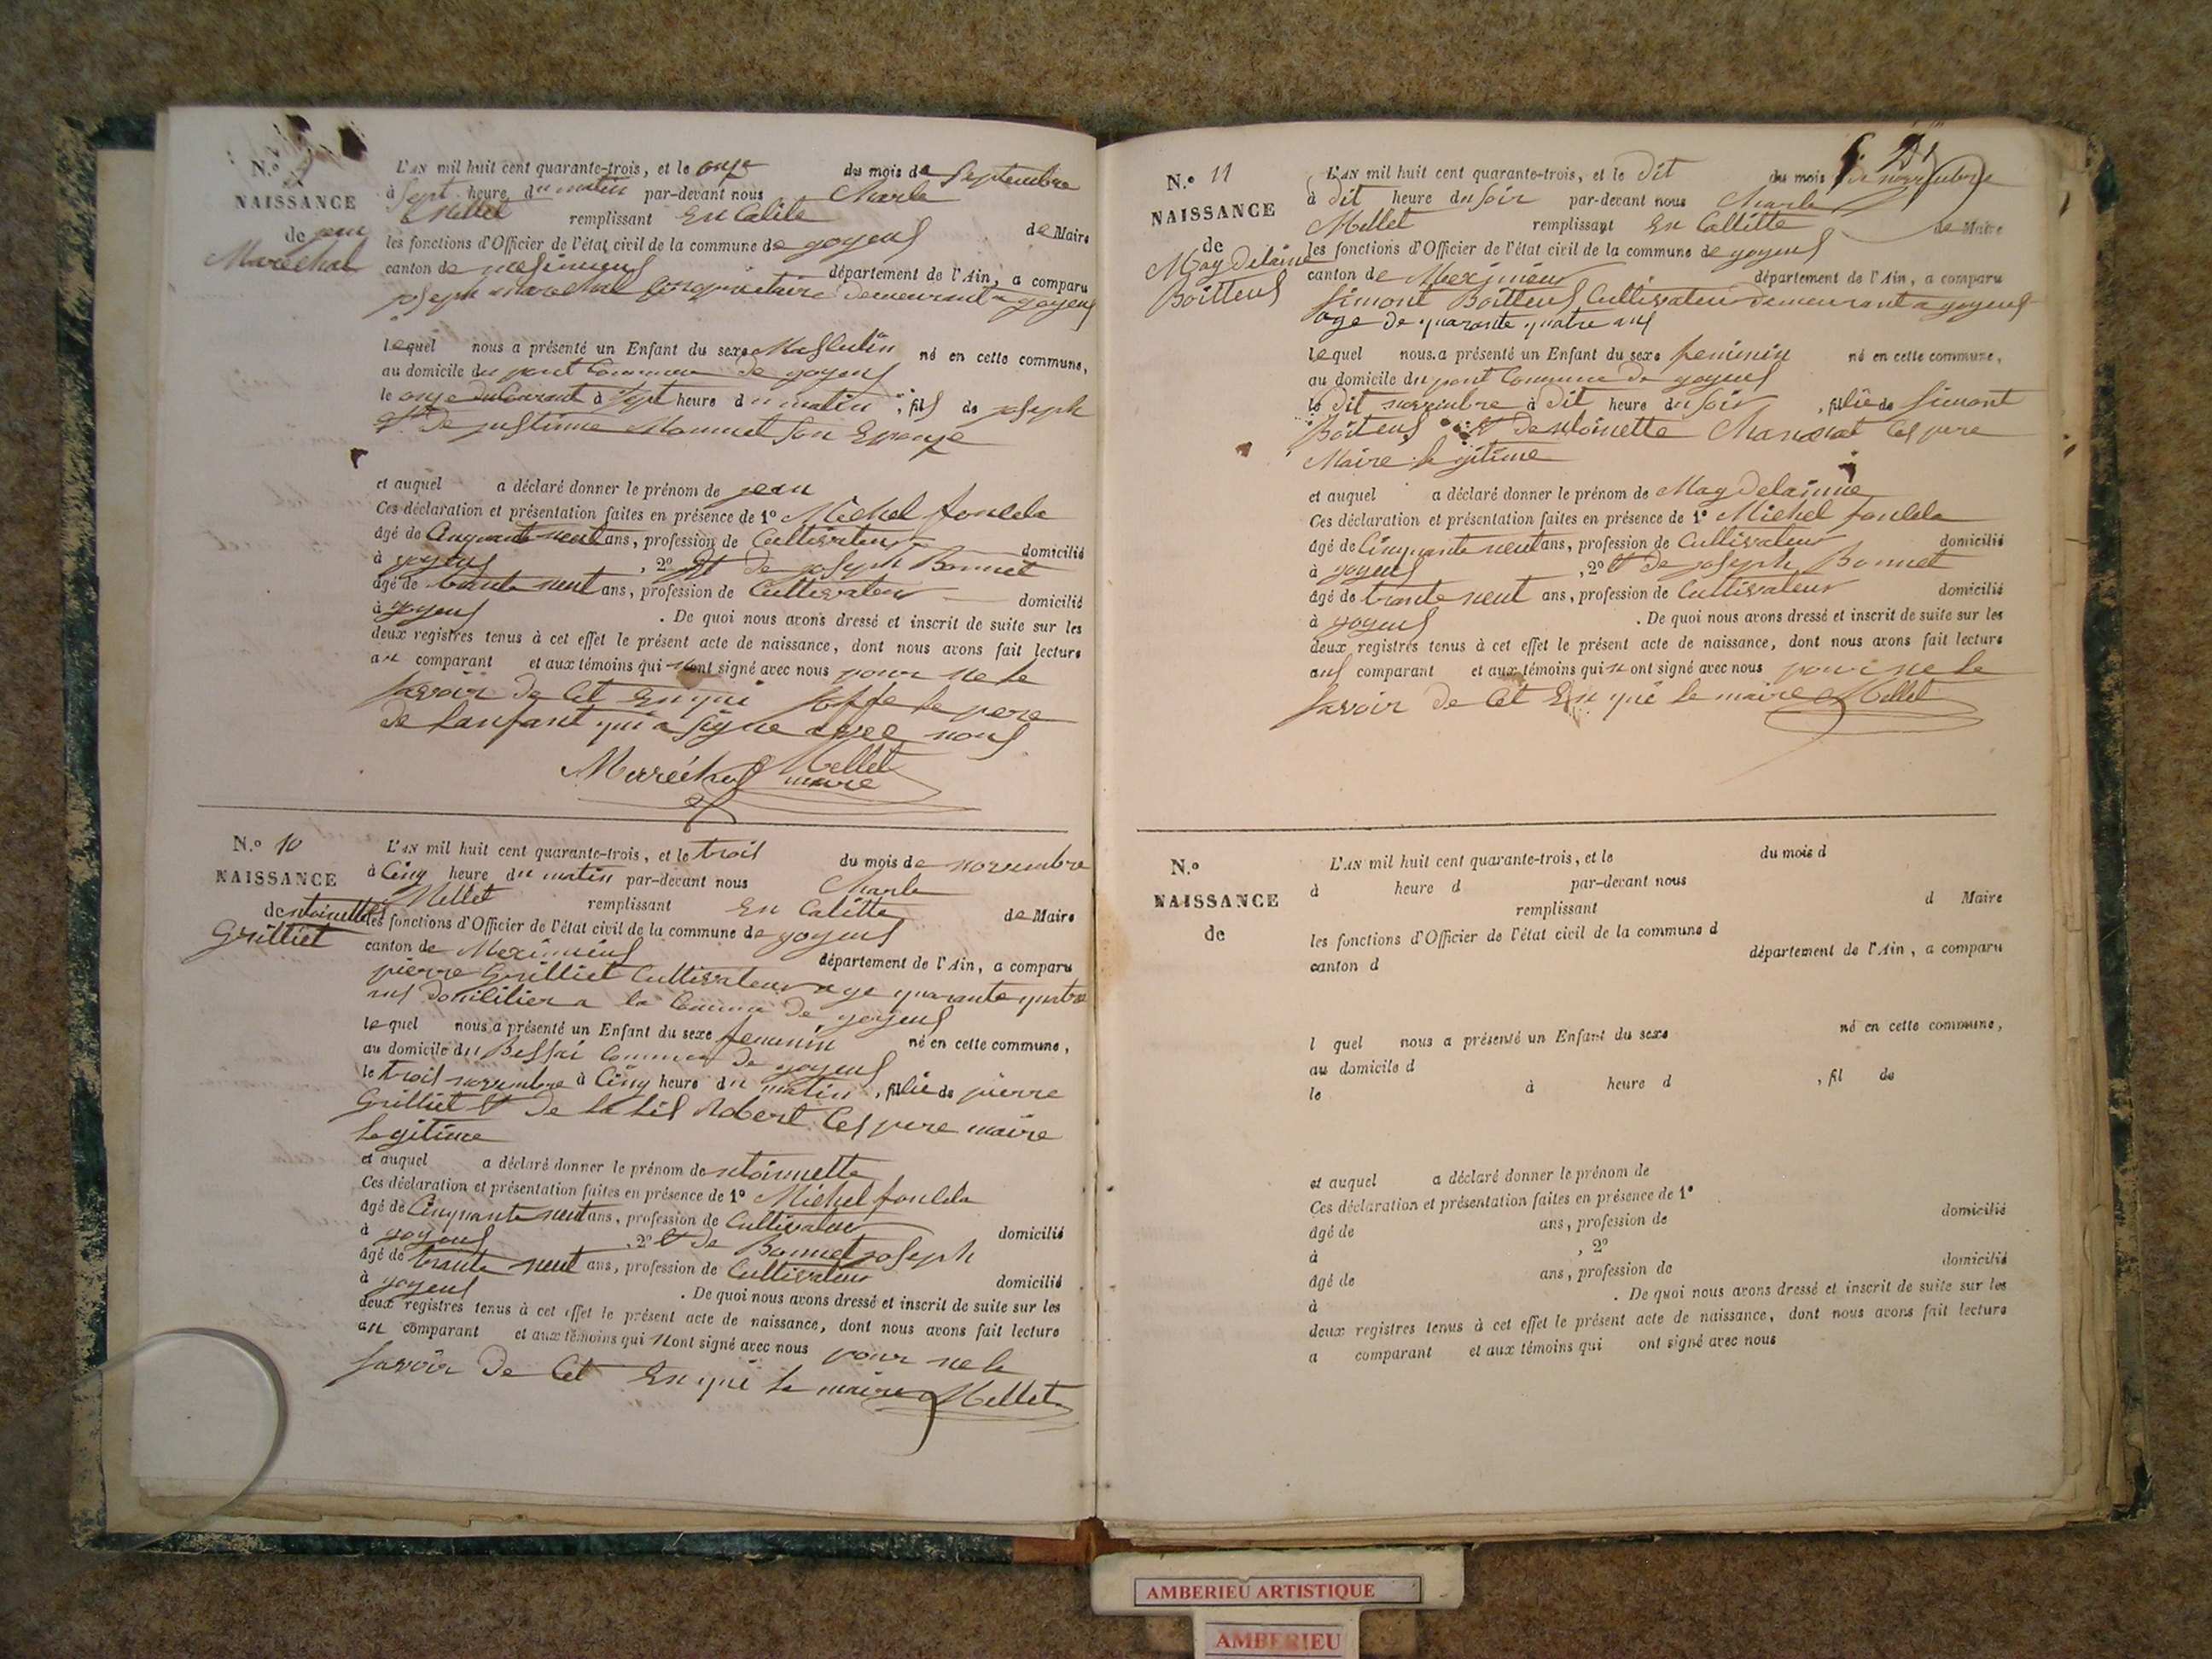 N.o 9
NAISSANCE
de jean
Maréchal
L'AN mil huit cent quarante-trois, et le onze du mois de Septembre
à Sept heure du matin par-devant nous Charle
Mellet remplissant En Calite de Maire
les fonctions d'Officier de l'état civil de la commune de joyeus
canton de mesimieus département de l'Ain, a comparu
joseph marechal demeurant a joyeus
lequel nous a présenté un Enfant du sexe Masculin né en cette commune,
au domicile du pont Commune de joyeus
le onze du Courant à Sept heure du matin, fils de joseph
et De justinne Mounnet Son Epouse
et auquel a déclaré donner le prénom de jean
Ces déclaration et présentation faites en présence de 1o Michel
âgé de Cinquante neuf ans, profession de Cultivateur domicilié
à joyeus, 2o Et de joseph Bonnet
âgé de trante neuf ans, profession de Cultivateur domicilié
à joyeus. De quoi nous avons dressé et inscrit de suite sur les
deux registres tenus à cet effet le présent acte de naissance, dont nous avons fait lecture
au comparant et aux témoins qui nont signé avec nous pour ne le
Savoir de Cet Enqui le pere
de Lanfant qui a signe avec nous
Maréchal Mellet
maire
N.o 10
NAISSANCE
de ntoinette
Grilliet
L'AN mil huit cent quarante-trois, et le trois du mois de novembre
à Cinq heure du matin par-devant nous Charle
Mellet remplissant En Calitte de Maire
les fonctions d'Officier de l'état civil de la commune de joyeus
canton de Meximieus département de l'Ain, a comparu
pierre Grilliet Cultivateur age quarante quatre
ans domilier a la Commune De joyeus
lequel nous a présenté un Enfant du sexe feminin né en cette commune,
au domicile du Bessai Commune De joyeus
le trois novembre à Cinq heure du matin, filie de pierre
Grilliet Et De Robert Ces pere maire
Legitime
et auquel a déclaré donner le prénom de ntoinnette
Ces déclaration et présentation faites en présence de 1o Michel
âgé de Cinquante neuf ans, profession de Cultivateur domicilié
à joyeus, 2o Et De Bonnet joseph
âgé de trante neuf ans, profession de Cultivateur domicilié
à joyeus. De quoi nous avons dressé et inscrit de suite sur les
deux registres tenus à cet effet le présent acte de naissance, dont nous avons fait lecture
au comparant et aux témoins qui nont signé avec nous pour ne le
Savoir De Cet Enqui le maire Mellet
N.o 11
NAISSANCE
de
MagDelainne
Boitteus
L'AN mil huit cent quarante-trois, et le Dit du mois de novembre
à dit heure du Soir par-devant nous Charle
Mellet remplissant En Callitte de Maire
les fonctions d'Officier de l'état civil de la commune de joyeus
canton de Meximeus département de l'Ain, a comparu
Simont Boitteus Cultivateur demeurant a joyeus
age De quarante quatre ans
lequel nous a présenté un Enfant du sexe feminin né en cette commune,
au domicile du pont Commune De joyeus
le Dit novembre à Dit heure du Soir, filie de Simont
Boiteus Et De ntoinette Ces pere
Maire legitime
et auquel a déclaré donner le prénom de MagDelainne
Ces déclaration et présentation faites en présence de 1o Michel
âgé de Cinquante neuf ans, profession de Cultivateur domicilié
à joyeus, 2o Et De joseph Bonnet
âgé de trante neuf ans, profession de Cultivateur domicilié
à joyeus. De quoi nous avons dressé et inscrit de suite sur les
deux registres tenus à cet effet le présent acte de naissance, dont nous avons fait lecture
aus comparant et aux témoins qui nont signé avec nous pour ne le
Savoir De Cet En qui le maire Mellet
N.o
NAISSANCE
de
L'AN mil huit cent quarante-trois, et le du mois d
à heure d par-devant nous
remplissant d Maire
les fonctions d'Officier de l'état civil de la commune d
canton d département de l'Ain, a comparu
l quel nous a présenté un Enfant du sexe né en cette commune,
au domicile d
le à heure d, fil de
et auquel a déclaré donner le prénom de
Ces déclaration et présentation faites en présence de 1o
âgé de ans, profession de domicilié
à, 2o
âgé de ans, profession de domicilié
à. De quoi nous avons dressé et inscrit de suite sur les
deux registres tenus à cet effet le présent acte de naissance, dont nous avons fait lecture
a comparant et aux témoins qui ont signé avec nous
AMBERIEU ARTISTIQUE
AMBERIEU